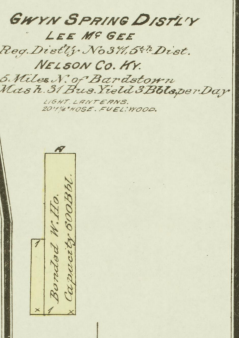 GWYN SPRING DIST'L'Y
LEE Mc GEE
Reg. Distl'y. No 371, 5th Dist.
NELSON CO. KY.
5. Miles N. of Bardstown
Mash. 31 Bus. Yield 3 Bbls per Day
LIGHT: LANTERNS.
HOSE. FUEL: WOOD.
A
Bonded W. Ho.
Capacity 600 Bbl.
1
1
x
x